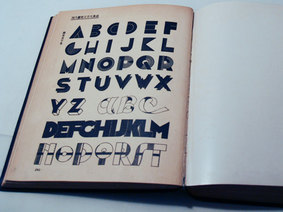 ABCDEF
GHIJKL
MNOPQR
STUVWX
YZ ABC
DEFGHIJKLM
NOPQRST